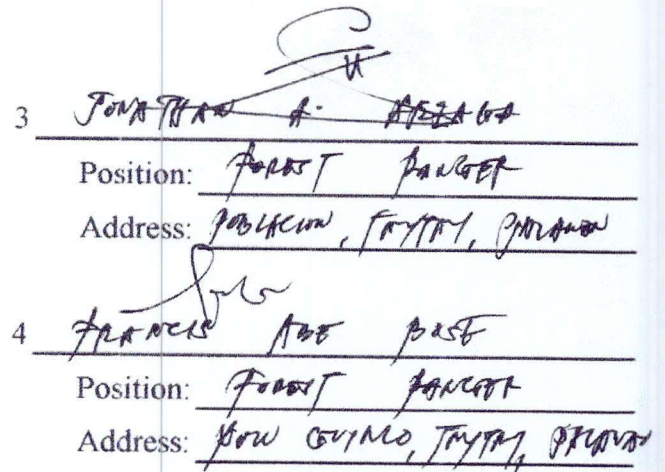 3 JONATHAN A. ARZAGA
Position: FOREST RANGER
Address: POBLACION, TAYTAY, PALAWAN
4 FRANCIS ABE BOSE
Position: FOREST RANGER
Address: TAYTAY, PALAWAN